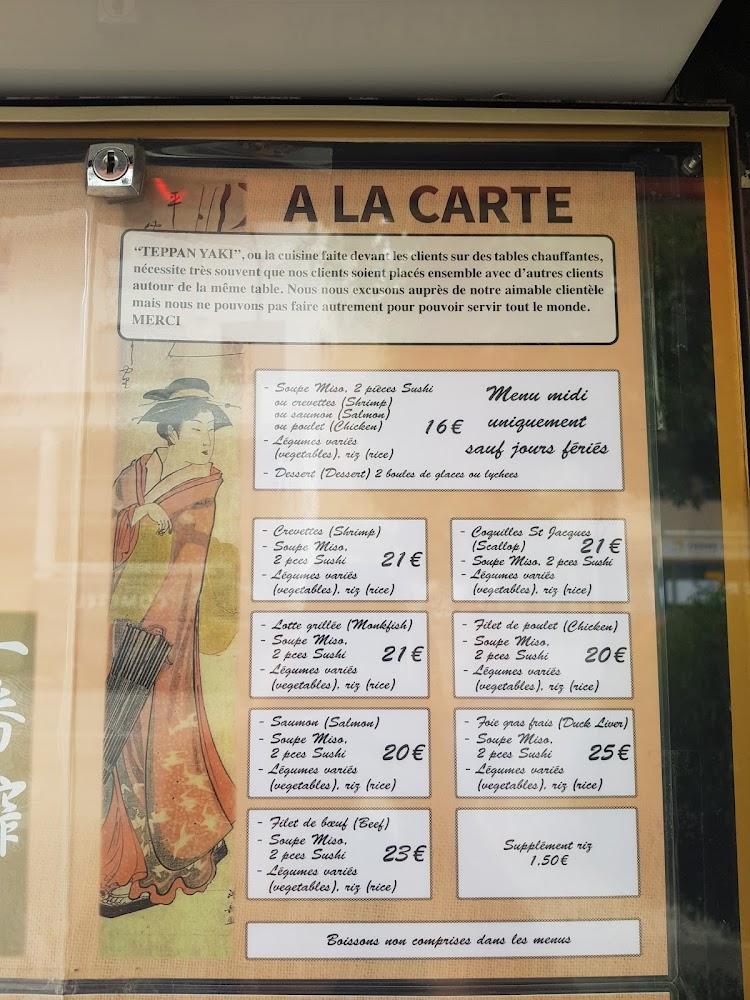 A LA CARTE
“TEPPAN YAKI”, ou la cuisine faite devant les clients sur des tables chauffantes,
nécessite très souvent que nos clients soient placés ensemble avec d’autres clients
autour de la même table. Nous nous excusons auprès de notre aimable clientèle
mais nous ne pouvons pas faire autrement pour pouvoir servir tout le monde.
MERCI
- Soupe Miso, 2 pièces Sushi
ou crevettes (Shrimp)
ou saumon (Salmon)
ou poulet (Chicken)
- Légumes variés
(vegetables), riz (rice)
- Dessert (Dessert) 2 boules de glaces ou lychees
16€
Menu midi
uniquement
sauf jours fériés
- Crevettes (Shrimp)
- Soupe Miso,
2 pces Sushi
- Légumes variés
(vegetables), riz (rice)
21€
- Coquilles St Jacques
(Scallop)
- Soupe Miso, 2 pces Sushi
- Légumes variés
(vegetables), riz (rice)
21€
- Lotte grillée (Monkfish)
- Soupe Miso,
2 pces Sushi
- Légumes variés
(vegetables), riz (rice)
21€
- Filet de poulet (Chicken)
- Soupe Miso,
2 pces Sushi
- Légumes variés
(vegetables), riz (rice)
20€
- Saumon (Salmon)
- Soupe Miso,
2 pces Sushi
- Légumes variés
(vegetables), riz (rice)
20€
- Foie gras frais (Duck Liver)
- Soupe Miso,
2 pces Sushi
- Légumes variés
(vegetables), riz (rice)
25€
- Filet de bœuf (Beef)
- Soupe Miso,
2 pces Sushi
- Légumes variés
(vegetables), riz (rice)
23€
Supplément riz
1,50€
Boissons non comprises dans les menus